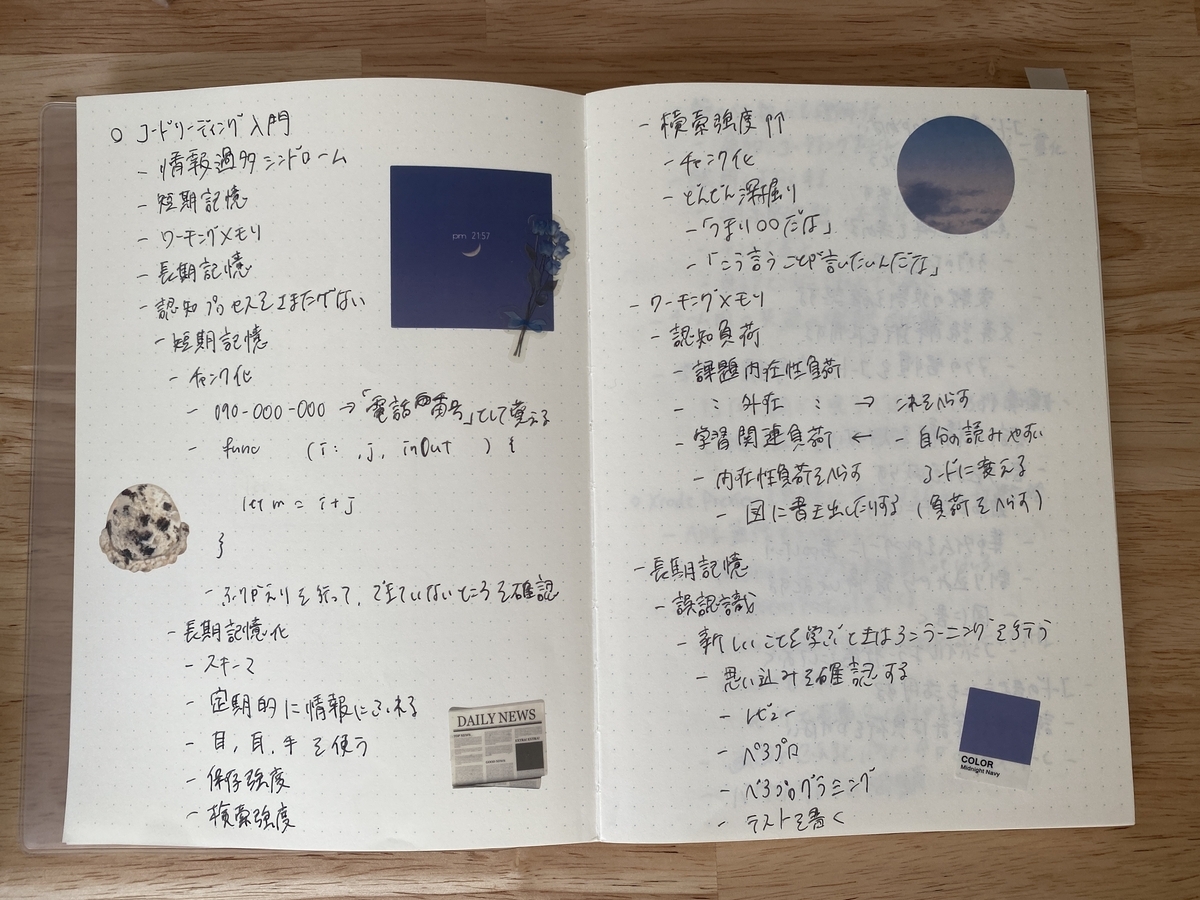 ○ コードリーディング入門
- 情報過多シンドローム
- 短期記憶
- ワーキングメモリ
- 長期記憶
- 認知プロセスを
- 短期記憶
- チャンク化
- 090-000-000 → 「電話番号」として覚える
- func (i: , j, inout ) {
let m = i + j
}
- ふりかえりを行って、できていないところを確認
- 長期記憶化
- スキーマ
- 定期的に情報にふれる
- 目, 耳, 手を使う
- 保存強度
- 検索強度
pm 21:57
DAILY NEWS
- 検索強度 ↑↑
- チャンク化
- どんどん深掘り
- 「つまり○○だな」
- 「こう言うことが言いたいんだな」
- ワーキングメモリ
- 認知負荷
- 課題内在性負荷
- 〃 外在 〃 → これをへらす
- 学習関連負荷 ← - 自分の読みやすい
コードに変える
- 内在性負荷をへらす
- 図に書き出したりする (負荷をへらす)
- 長期記憶
- 誤認識
- 新しいことを学ぶときはアンラーニングを行う
- 思い込みを確認する
- レビュー
- ペアプロ
- ペアプログラミング
- テストを書く
COLOR
Midnight Navy